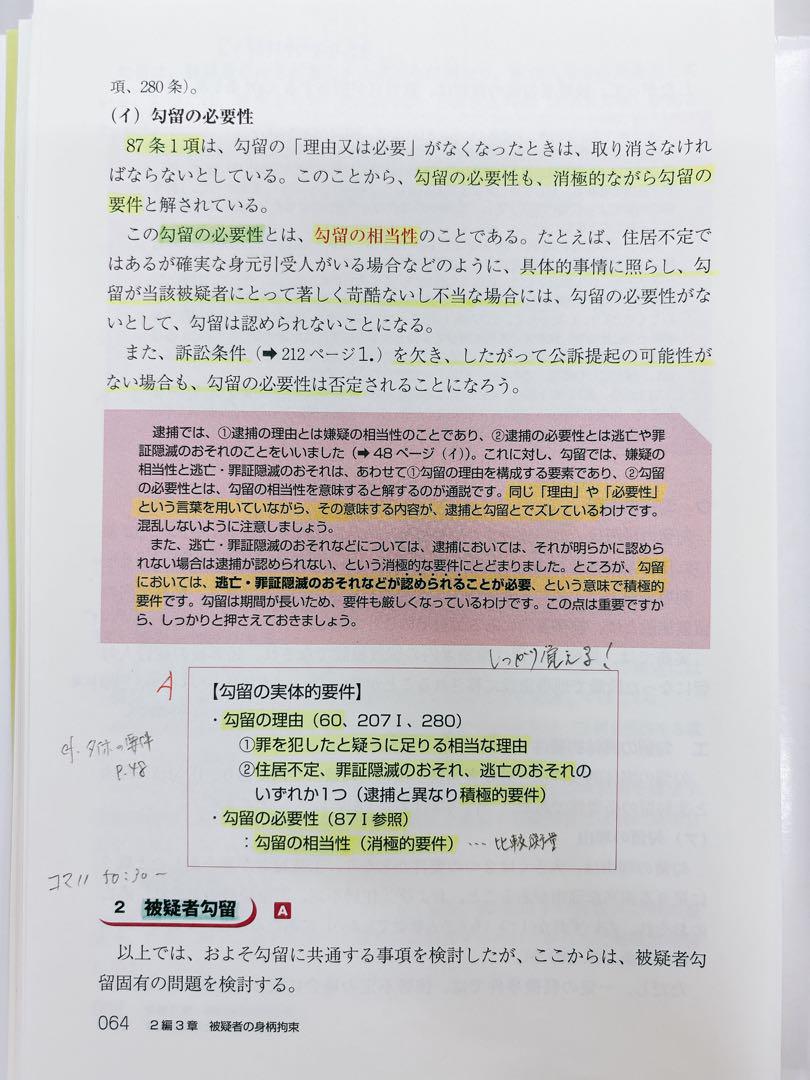 項、280 条）。
（イ）勾留の必要性
87 条 1 項は、勾留の「理由又は必要」がなくなったときは、取り消さなけれ
ばならないとしている。このことから、勾留の必要性も、消極的ながら勾留の
要件と解されている。
この勾留の必要性とは、勾留の相当性のことである。たとえば、住居不定で
はあるが確実な身元引受人がいる場合などのように、具体的事情に照らし、勾
留が当該被疑者にとって著しく苛酷ないし不当な場合には、勾留の必要性がな
いとして、勾留は認められないことになる。
また、訴訟条件（➡ 212 ページ 1.）を欠き、したがって公訴提起の可能性が
ない場合も、勾留の必要性は否定されることになろう。
逮捕では、①逮捕の理由とは嫌疑の相当性のことであり、②逮捕の必要性とは逃亡や罪
証隠滅のおそれのことをいいました（➡ 48 ページ（イ））。これに対し、勾留では、嫌疑の
相当性と逃亡・罪証隠滅のおそれは、あわせて①勾留の理由を構成する要素であり、②勾留
の必要性とは、勾留の相当性を意味すると解するのが通説です。同じ「理由」や「必要性」
という言葉を用いていながら、その意味する内容が、逮捕と勾留とでズレているわけです。
混乱しないように注意しましょう。
また、逃亡・罪証隠滅のおそれなどについては、逮捕においては、それが明らかに認めら
れない場合は逮捕が認められない、という消極的な要件にとどまりました。ところが、勾留
においては、逃亡・罪証隠滅のおそれなどが認められることが必要、という意味で積極的
要件です。勾留は期間が長いため、要件も厳しくなっているわけです。この点は重要ですか
ら、しっかりと押さえておきましょう。
しっかり覚える！
A
【勾留の実体的要件】
・勾留の理由（60、207Ⅰ、280）
①罪を犯したと疑うに足りる相当な理由
②住居不定、罪証隠滅のおそれ、逃亡のおそれの
いずれか1つ（逮捕と異なり積極的要件）
・勾留の必要性（87Ⅰ参照）
：勾留の相当性（消極的要件） … 比較衡量
cf. タイホの要件
P.48
コマ11 50:30〜
2 被疑者勾留 A
以上では、およそ勾留に共通する事項を検討したが、ここからは、被疑者勾
留固有の問題を検討する。
064 2編3章 被疑者の身柄拘束